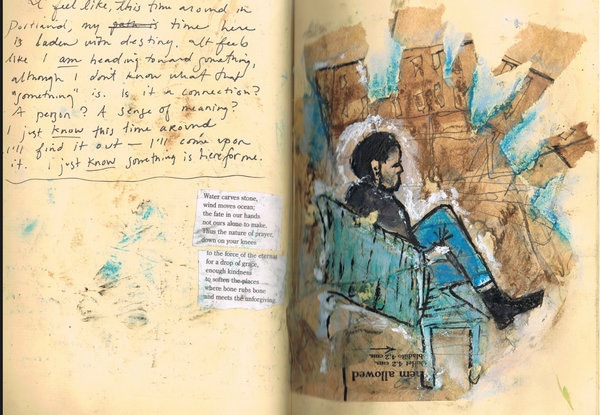 I feel like, this time around in
Portland, my path is time here
is laden with destiny. It feels
like I am heading toward something,
although I don't know what that
"something" is. Is it a connection?
A person? A sense of meaning?
I just know this time around
I'll find it out – I'll come upon
it. I just know something is here for me.
Water curves stone,
wind moves ocean;
the fate in our hands
not ours alone to make.
Thus the nature of prayer,
down on your knees
to the force of the eternal
for a drop of grace,
enough kindness
to soften the places
where bone rubs bone
and meets the unforgiving
hem allowed